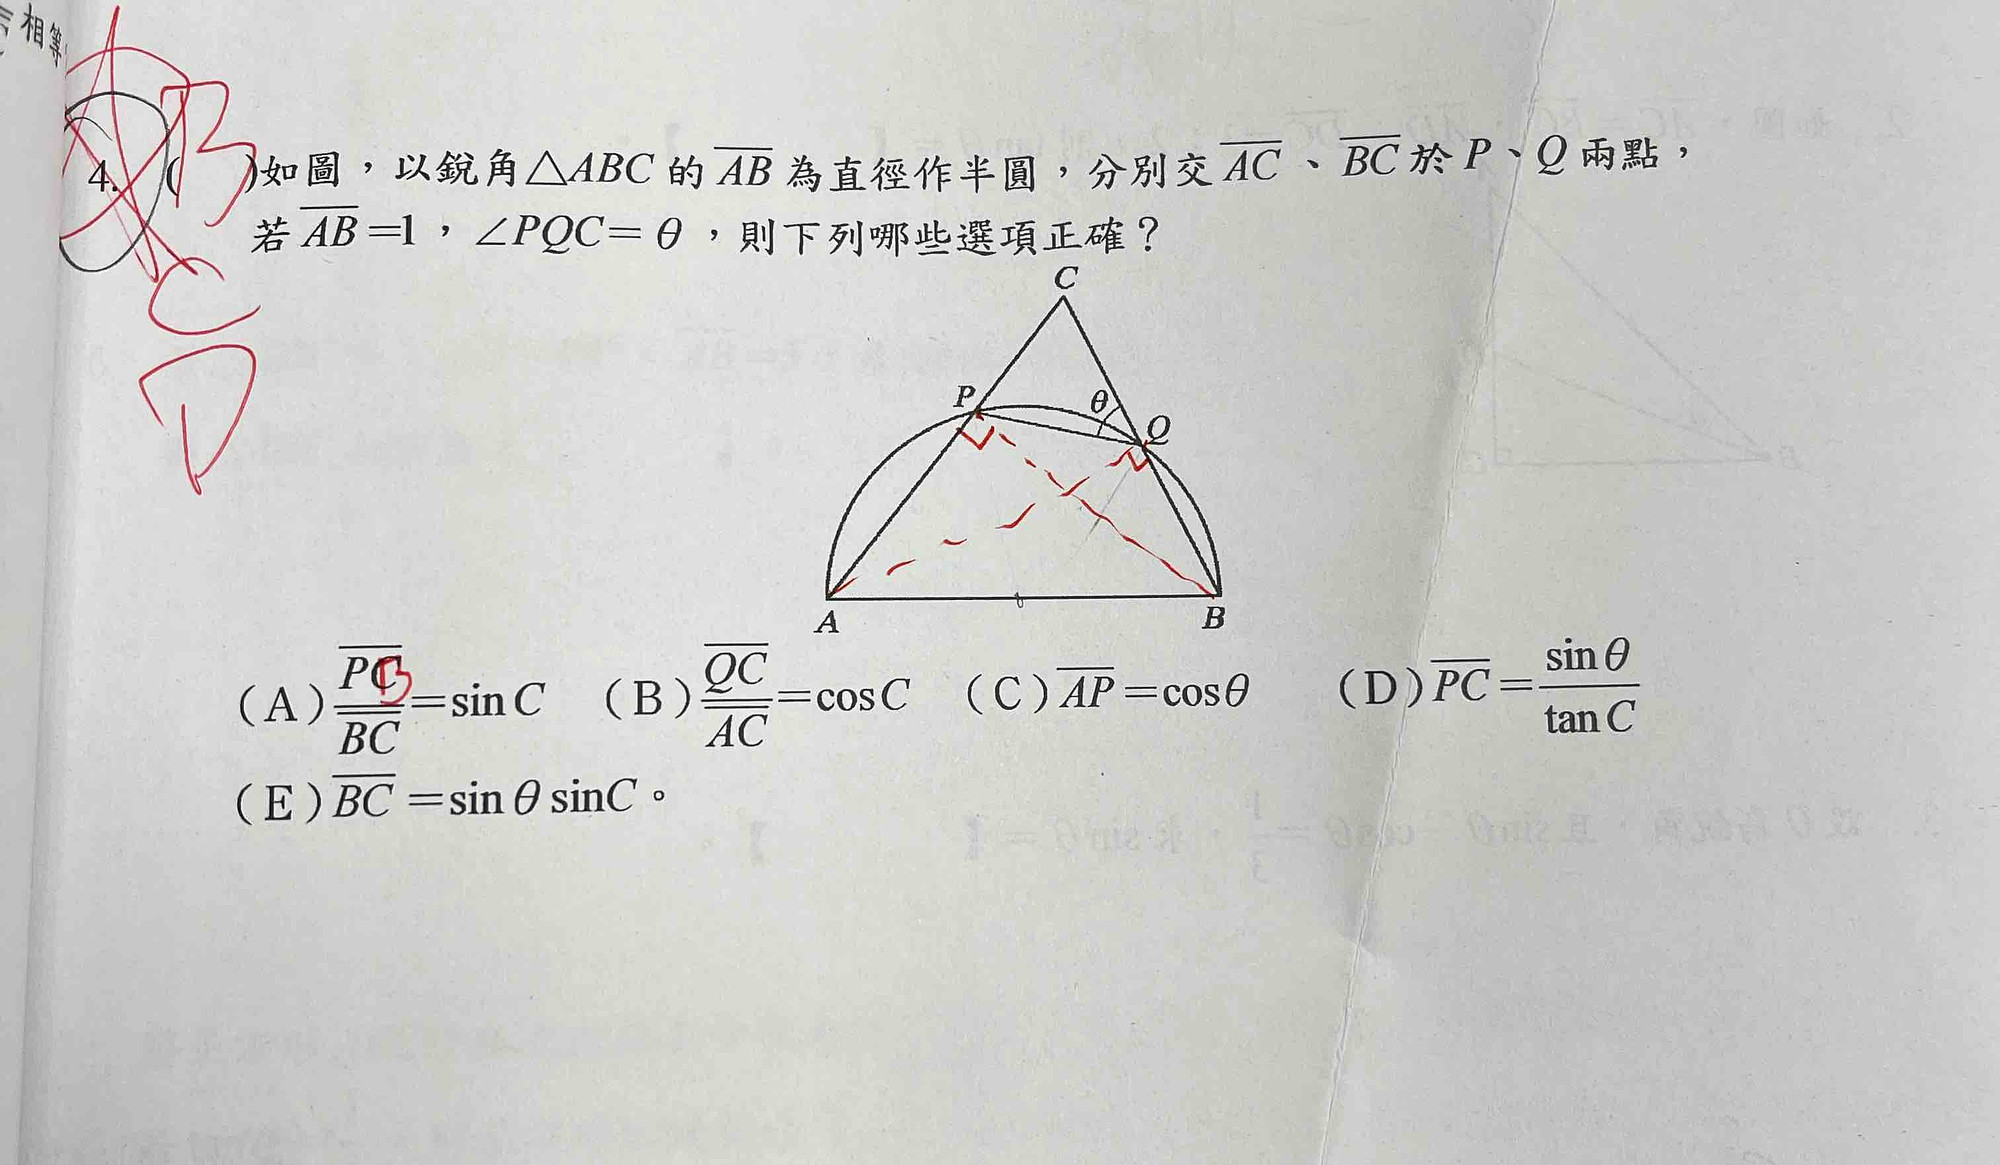 相等
B
4. ( )如圖，以銳角△ABC 的 AB 為直徑作半圓，分別交 AC 、BC 於 P、Q 兩點，
若 AB=1，∠PQC= θ ，則下列哪些選項正確？
C
D
C
P
θ
Q
A
B
(A) PC/BC = sin C (B) QC/AC = cos C (C) AP = cosθ (D) PC = sinθ/tan C
B
(E) BC = sin θ sinC 。